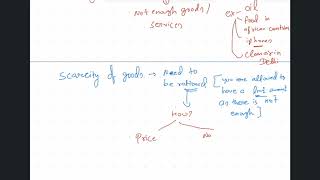 not enough goods/
services
ex- oil
food in
african countries
iphones
cleaner in
Delhi
Scarcity of goods → Need to
be rationed
[you are allowed to
have a limit amount
as there is not
enough]
How?
Price
No